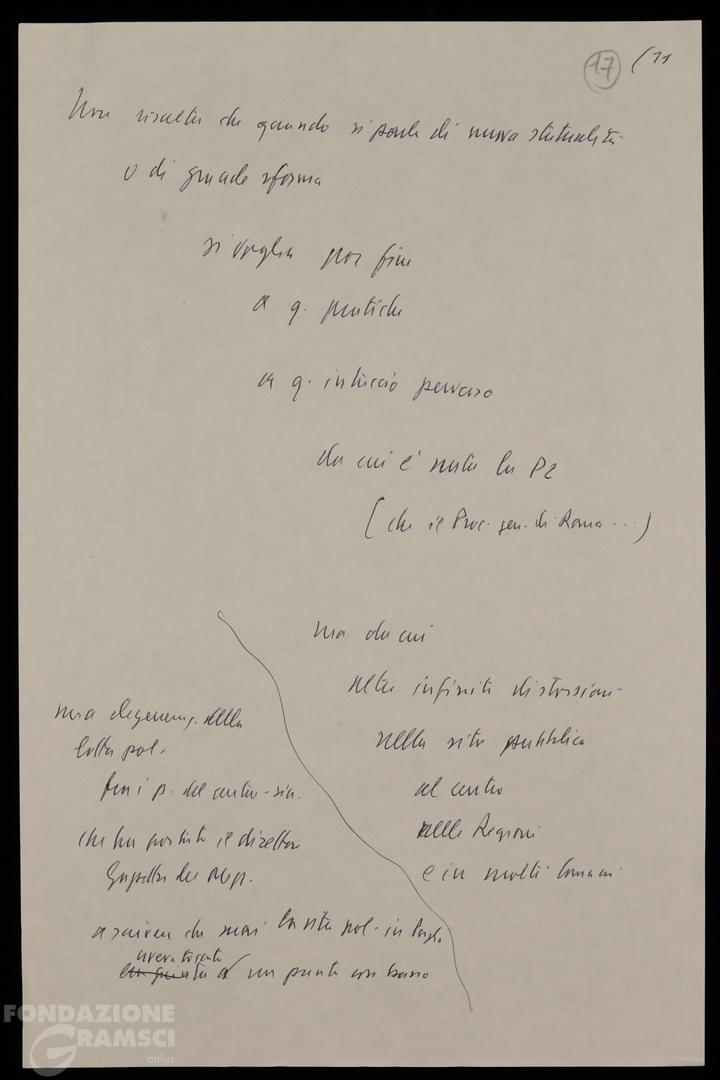 17 (11
Non risulta che quando si parla di nuova statualità
o di grande riforma
si voglia por fine
a q. pratiche
a q. intreccio perverso
da cui è nata la P2
(che il Proc. gen. di Roma ...)
ma da cui
altre infinite distorsioni
nella vita pubblica
al centro
nelle Regioni
e in molti Comuni
una degeneraz. della
lotta pol.
fra i p. del centro-sin.
che ha portato il direttore
Gazzetta del Mezz.
a scrivere che mai la vita pol. in Puglia
aveva toccato
un punto così basso
FONDAZIONE
GRAMSCI
onlus